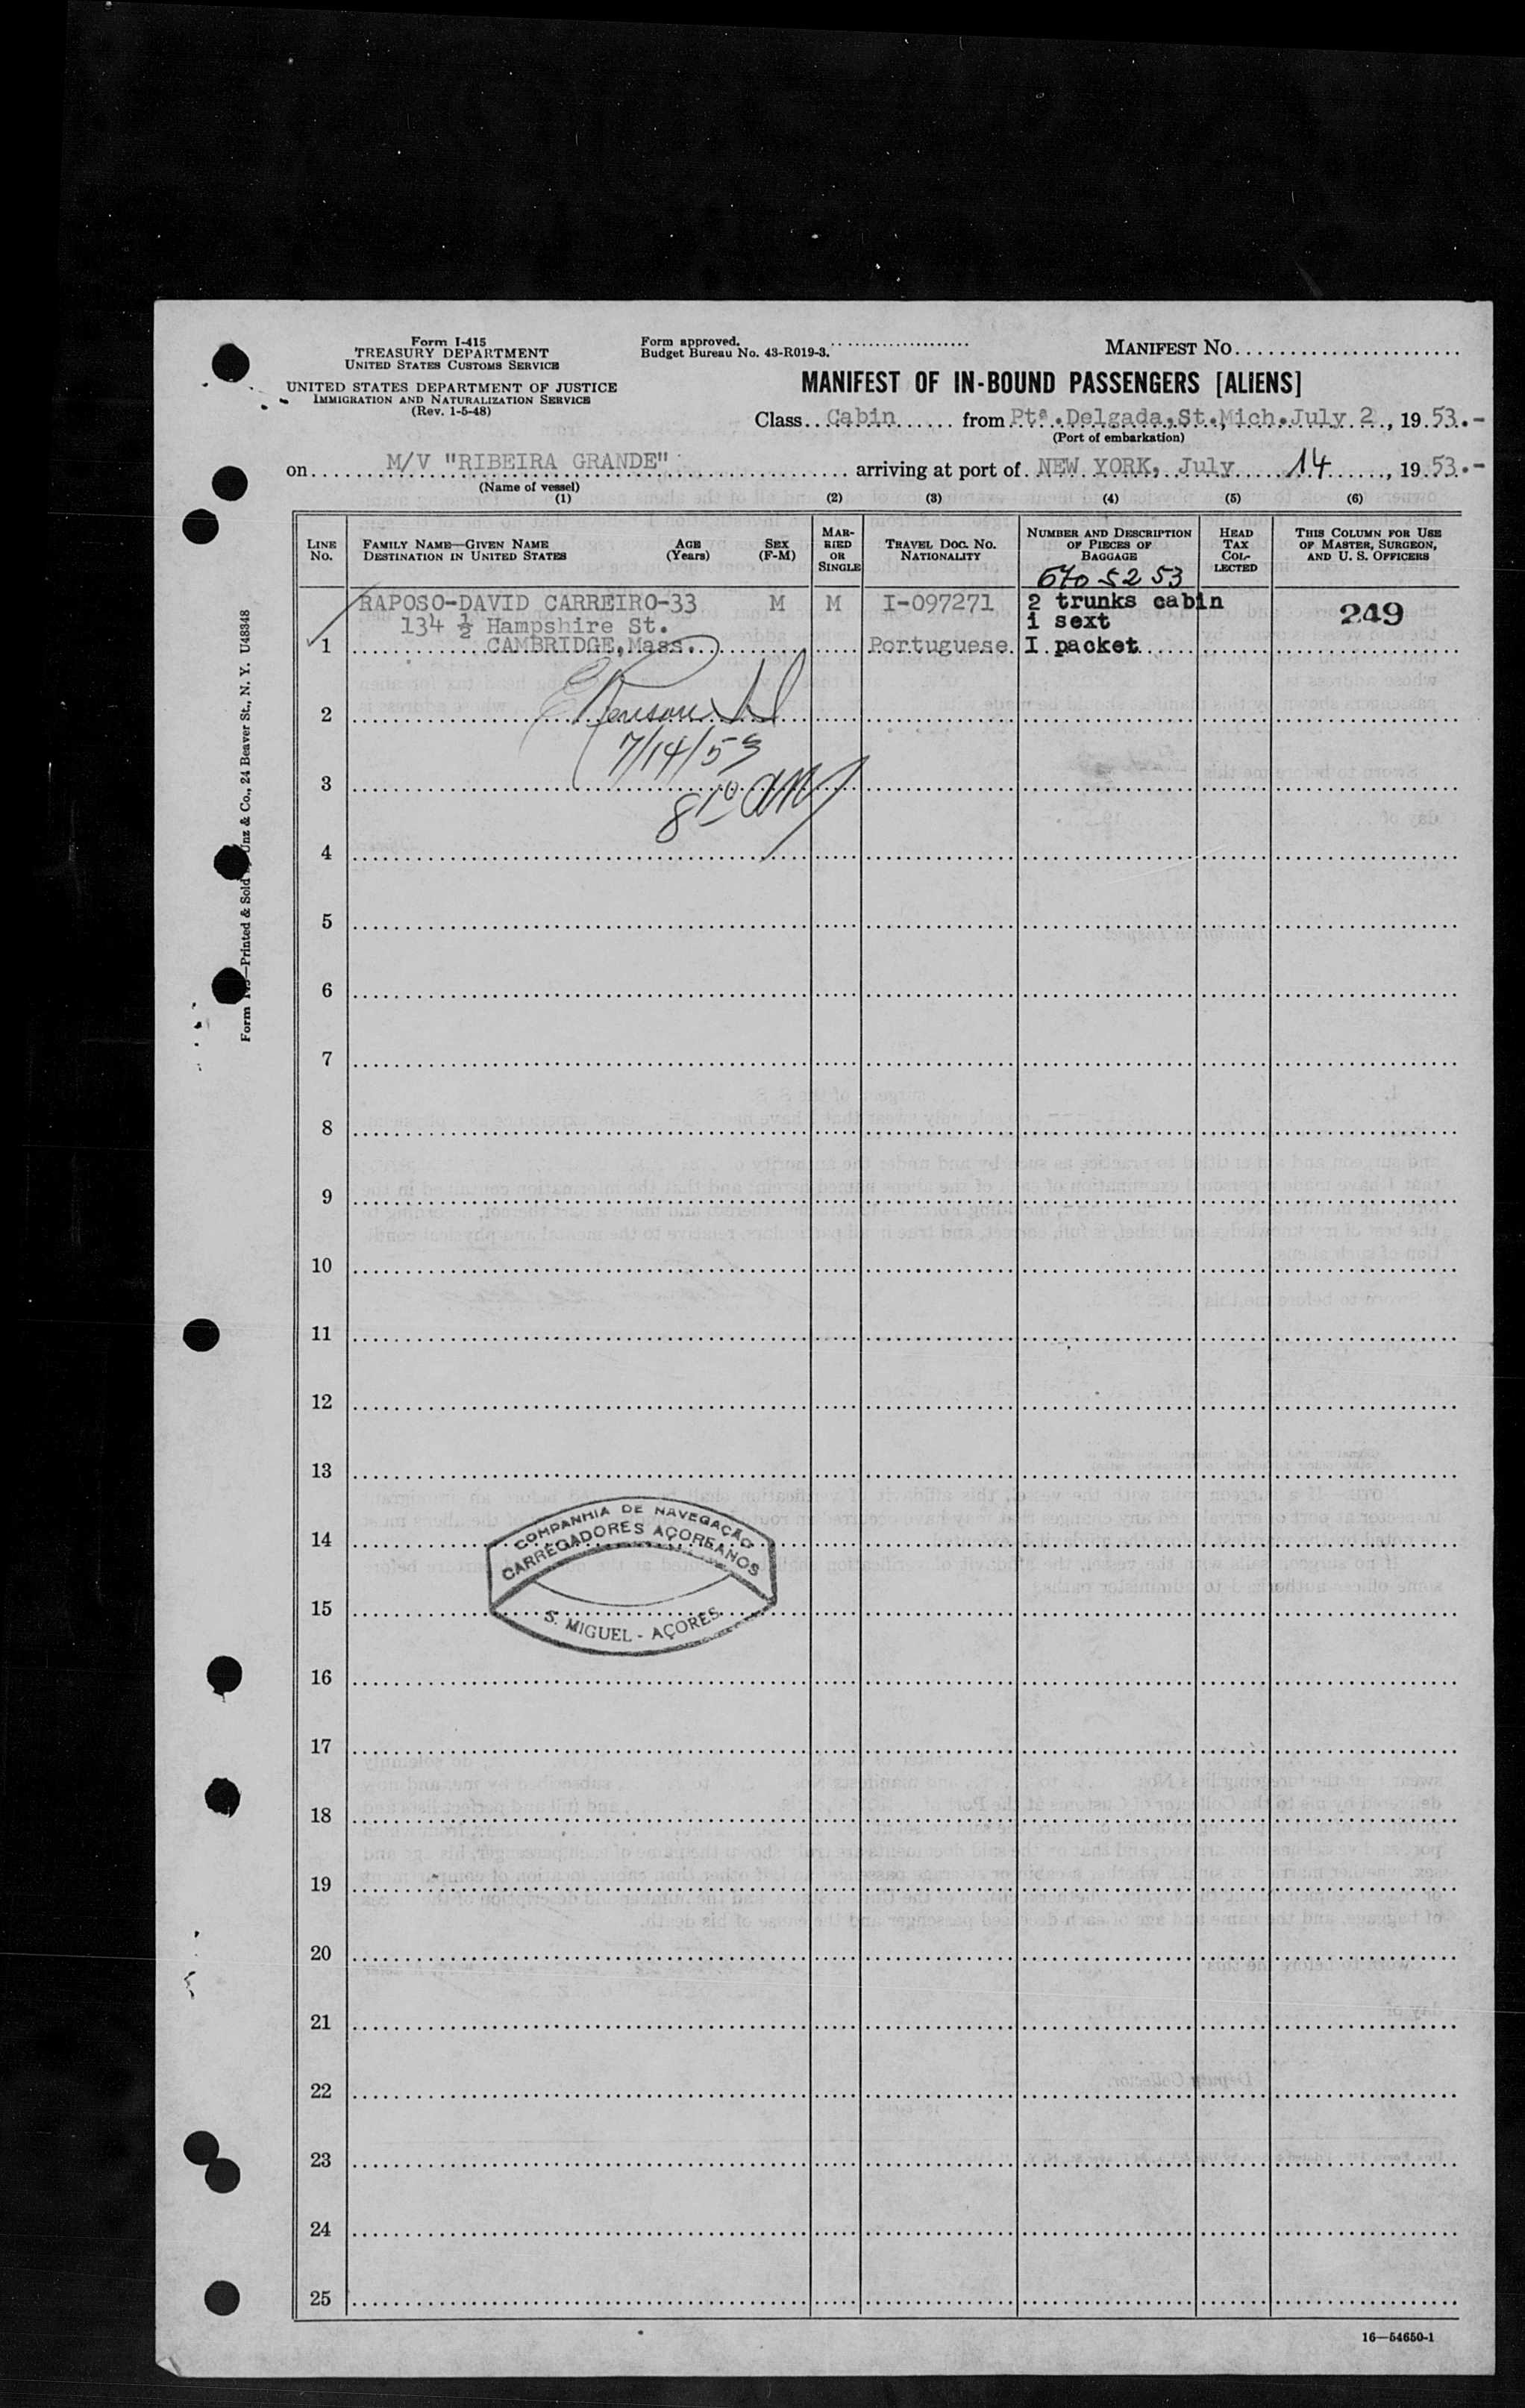 Form I-415
TREASURY DEPARTMENT
UNITED STATES CUSTOMS SERVICE
UNITED STATES DEPARTMENT OF JUSTICE
IMMIGRATION AND NATURALIZATION SERVICE
(Rev. 1-5-48)
Form approved.
Budget Bureau No. 43-R019-3.
MANIFEST NO.
MANIFEST OF IN-BOUND PASSENGERS [ALIENS]
Class Cabin from Ptª.Delgada,St.,Mich.July 2, 1953.-
(Port of embarkation)
on M/V "RIBEIRA GRANDE" arriving at port of NEW YORK, July 14, 1953.-
(Name of vessel)
(1) (2) (3) (4) (5) (6)
LINE NO.
FAMILY NAME—GIVEN NAME
DESTINATION IN UNITED STATES
AGE (Years)
SEX (F-M)
MARRIED OR SINGLE
TRAVEL DOC. NO.
NATIONALITY
NUMBER AND DESCRIPTION OF PIECES OF BAGGAGE
HEAD TAX COLLECTED
THIS COLUMN FOR USE OF MASTER, SURGEON, AND U. S. OFFICERS
670 5253
RAPOSO-DAVID CARREIRO-33 M M I-097271 2 trunks cabin 249
134 ½ Hampshire St. 1 sext
1 CAMBRIDGE,Mass. Portuguese I packet
2
7/14/53
3
8 10 AM
4
5
6
7
8
9
10
11
12
13
14
COMPANHIA DE NAVEGAÇÃO
CARREGADORES AÇOREANOS
15
S. MIGUEL - AÇORES
16
17
18
19
20
21
22
23
24
25
16—54650-1
Printed & Sold Unz & Co., 24 Beaver St., N. Y. U48348